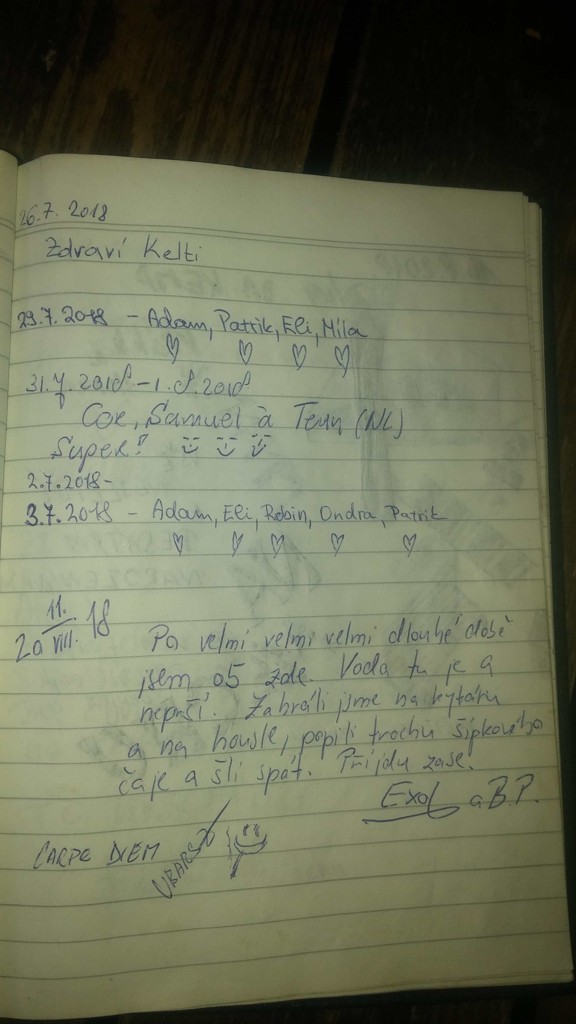 26.7. 2018
Zdraví Kelti
29.7.2018 - Adam, Patrik, Eli, Míla
31.7.2018 - 1.8.2018
Cor, Samuel à Teun (NL)
Super!
2.7.2018 -
3.7.2018 - Adam, Eli, Robin, Ondra, Patrik
20 11./VIII. 18
Po velmi velmi velmi dlouhé době
jsem o5 zde. Voda tu je a
neprší. Zahráli jsme na kytáru
a na housle, popili trochu šípkového
čaje a šli spát. Přijdu zase.
Exol a B.P.
CARPE DIEM